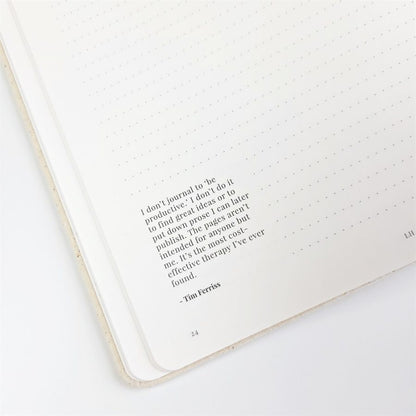 I don't journal to 'be
productive.' I don't do it
to find great ideas or to
put down prose I can later
publish. The pages aren't
intended for anyone but
me. It's the most cost-
effective therapy I've ever
found.
- Tim Ferriss
24